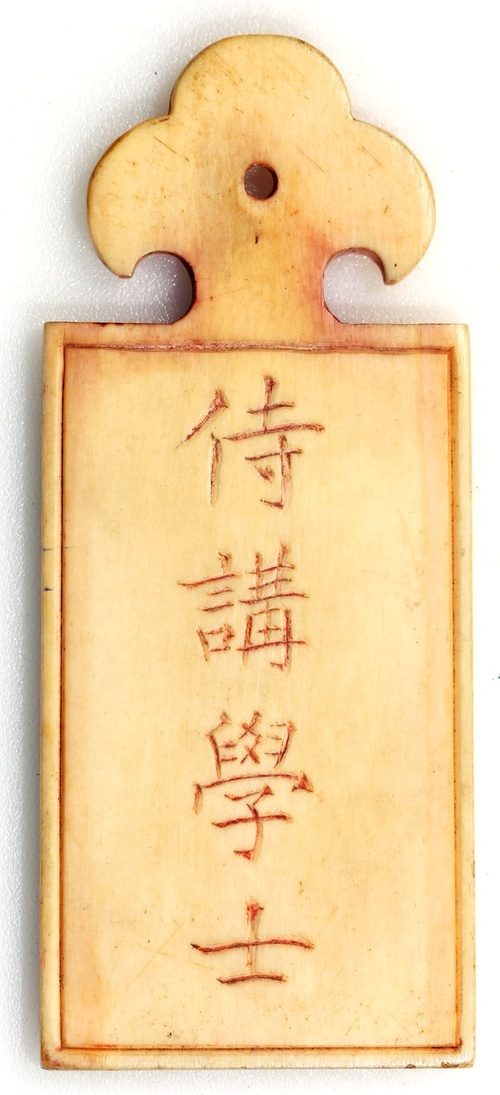 侍講學士